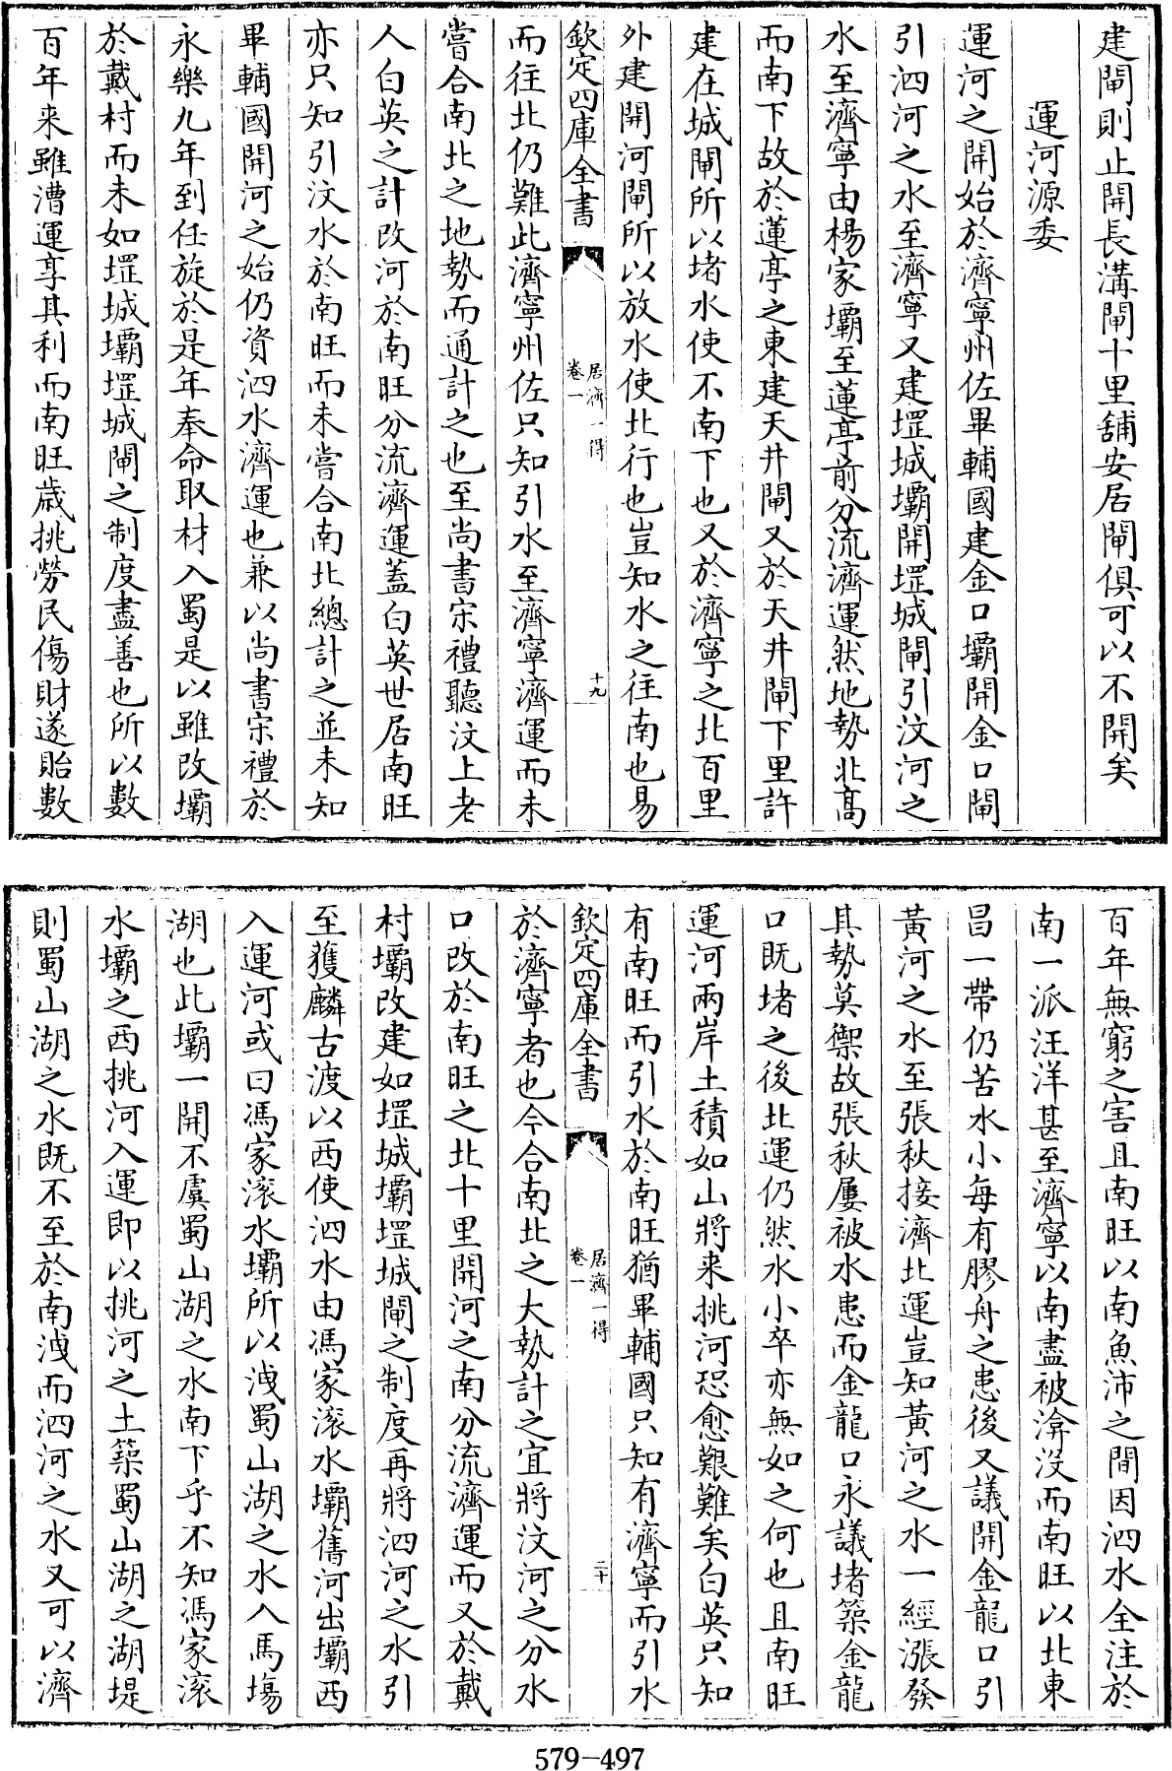 建閘則止開長溝閘十里舖安居閘俱可以不開矣
運河源委
運河之開始於濟寧州佐畢輔國建金口壩開金口閘
引泗河之水至濟寧又建堽城壩開堽城閘引汶河之
水至濟寧由楊家壩至蓮亭前分流濟運然地勢北高
而南下故於蓮亭之東建天井閘又於天井閘下里許
建在城閘所以堵水使不南下也又於濟寧之北百里
外建開河閘所以放水使北行也豈知水之往南也易
欽定四庫全書
居濟一得
卷一
十九
而往北仍難此濟寧州佐只知引水至濟寧濟運而未
嘗合南北之地勢而通計之也至尚書宋禮聽汶上老
人白英之計改河於南旺分流濟運蓋白英世居南旺
亦只知引汶水於南旺而未嘗合南北總計之並未知
畢輔國開河之始仍資泗水濟運也兼以尚書宋禮於
永樂九年到任旋於是年奉命取材入蜀是以雖改壩
於戴村而未如堽城壩堽城閘之制度盡善也所以數
百年來雖漕運享其利而南旺歲挑勞民傷財遂貽數
百年無窮之害且南旺以南魚沛之間因泗水全注於
南一派汪洋甚至濟寧以南盡被渰沒而南旺以北東
昌一帶仍苦水小每有膠舟之患後又議開金龍口引
黃河之水至張秋接濟北運豈知黃河之水一經漲發
其勢莫禦故張秋屢被水患而金龍口永議堵築金龍
口既堵之後北運仍然水小卒亦無如之何也且南旺
運河兩岸土積如山將來挑河恐愈艱難矣白英只知
有南旺而引水於南旺猶畢輔國只知有濟寧而引水
欽定四庫全書
居濟一得
卷一
二十
於濟寧者也今合南北之大勢計之宜將汶河之分水
口改於南旺之北十里開河之南分流濟運而又於戴
村壩改建如堽城壩堽城閘之制度再將泗河之水引
至獲麟古渡以西使泗水由馮家滚水壩舊河出壩西
入運河或曰馮家滚水壩所以洩蜀山湖之水入馬塲
湖也此壩一開不虞蜀山湖之水南下乎不知馮家滚
水壩之西挑河入運即以挑河之土築蜀山湖之湖堤
則蜀山湖之水既不至於南洩而泗河之水又可以濟
579-497